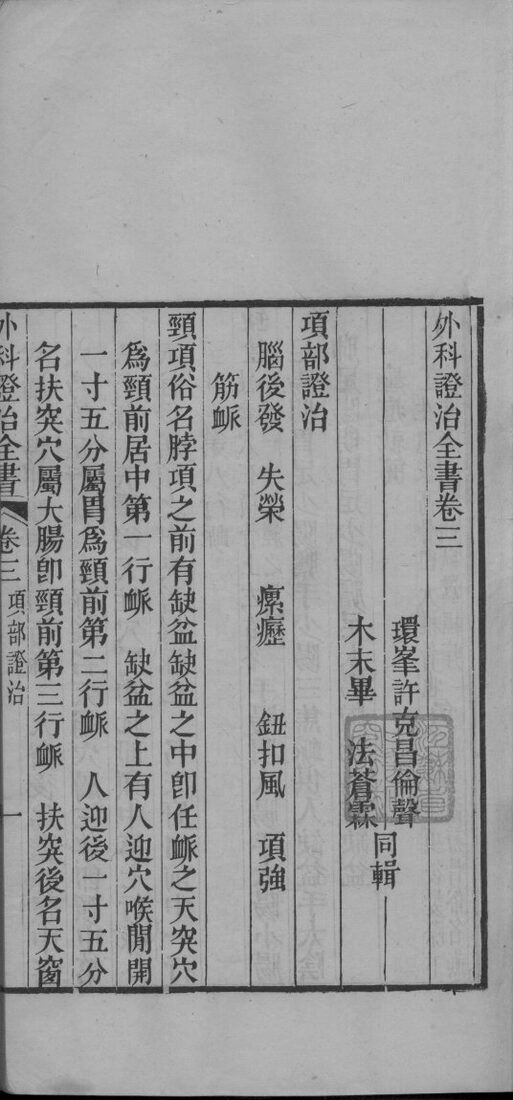 外科證治全書卷三
環峯許克昌倫聲
同輯
木末畢　法蒼霖
項部證治
腦後發　失榮　瘰癧　鈕扣風　項強
筋衇
頸項俗名脖項之前有缺盆缺盆之中卽任衇之天突穴
爲頸前居中第一行衇　缺盆之上有人迎穴喉閒開
一寸五分屬胃爲頸前第二行衇　人迎後一寸五分
名扶突穴屬大腸卽頸前第三行衇　扶突後名天窗
外科證治全書　卷三　項部證治　一